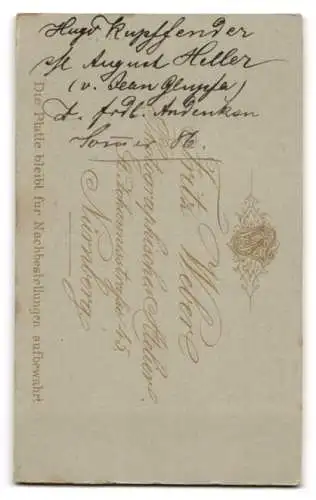 Hugo Kupffender
s/l August Heller
(v. Jean
z. frdl. Andenken
Sommer 86.
Fritz Weber
Photographisches Atelier.
St. Johannisstraße 45
Nürnberg.
Die Platte bleibt für Nachbestellungen aufbewahrt